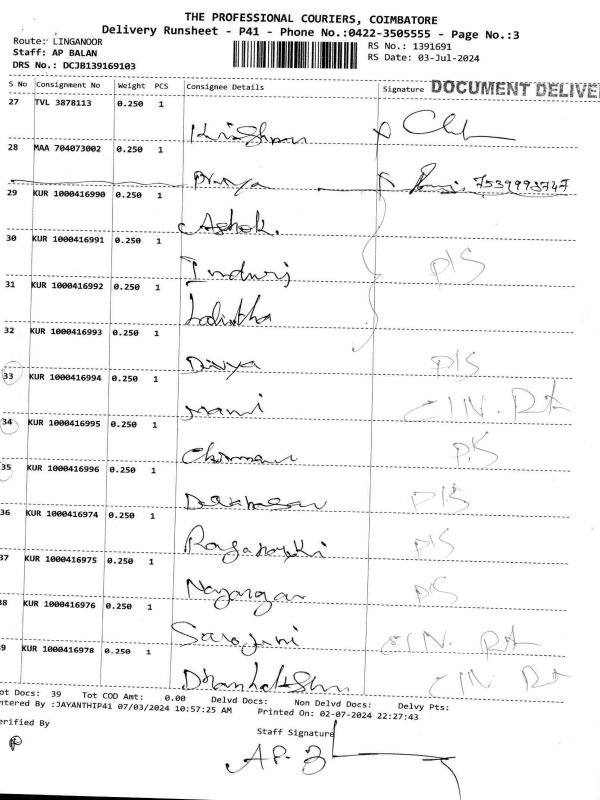 THE PROFESSIONAL COURIERS, COIMBATORE
Delivery Runsheet - P41 - Phone No.:0422-3505555 - Page No.:3
Route: LINGANOOR
RS No.: 1391691
Staff: AP BALAN
RS Date: 03-Jul-2024
DRS No.: DCJB139169103
S No Consignment No Weight PCS Consignee Details Signature DOCUMENT DELIVE
27 TVL 3878113 0.250 1
Krishnan
28 MAA 704073002 0.250 1
Priya 7539993747
29 KUR 1000416990 0.250 1
Ashok.
30 KUR 1000416991 0.250 1
P/S
31 KUR 1000416992 0.250 1
Lalitha
32 KUR 1000416993 0.250 1
Divya P/S
33 KUR 1000416994 0.250 1
Mani
34 KUR 1000416995 0.250 1
P.S
35 KUR 1000416996 0.250 1
P/S
36 KUR 1000416974 0.250 1
P/S
37 KUR 1000416975 0.250 1
P/S
38 KUR 1000416976 0.250 1
Sarojini
39 KUR 1000416978 0.250 1
ot Docs: 39 Tot COD Amt: 0.00 Delvd Docs: Non Delvd Docs: Delvy Pts:
ntered By :JAYANTHIP41 07/03/2024 10:57:25 AM Printed On: 02-07-2024 22:27:43
erified By
Staff Signature
AP. B